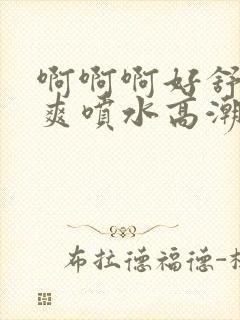 啊啊啊好舒
爽喷水高潮
布拉德福德-